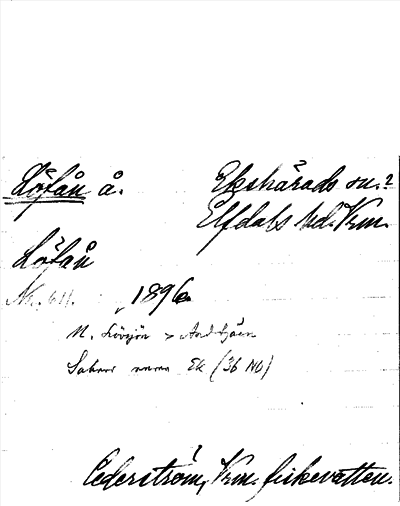 Löfån å. Ekshärads sn.?
Elfdals hd. Vrm.
Löfån
Nr. 611. 1896
N. Lövsjön > Andtjärn
Saknar namn Ek (36 NO)
Cederström, Vrm. fiskevatten.